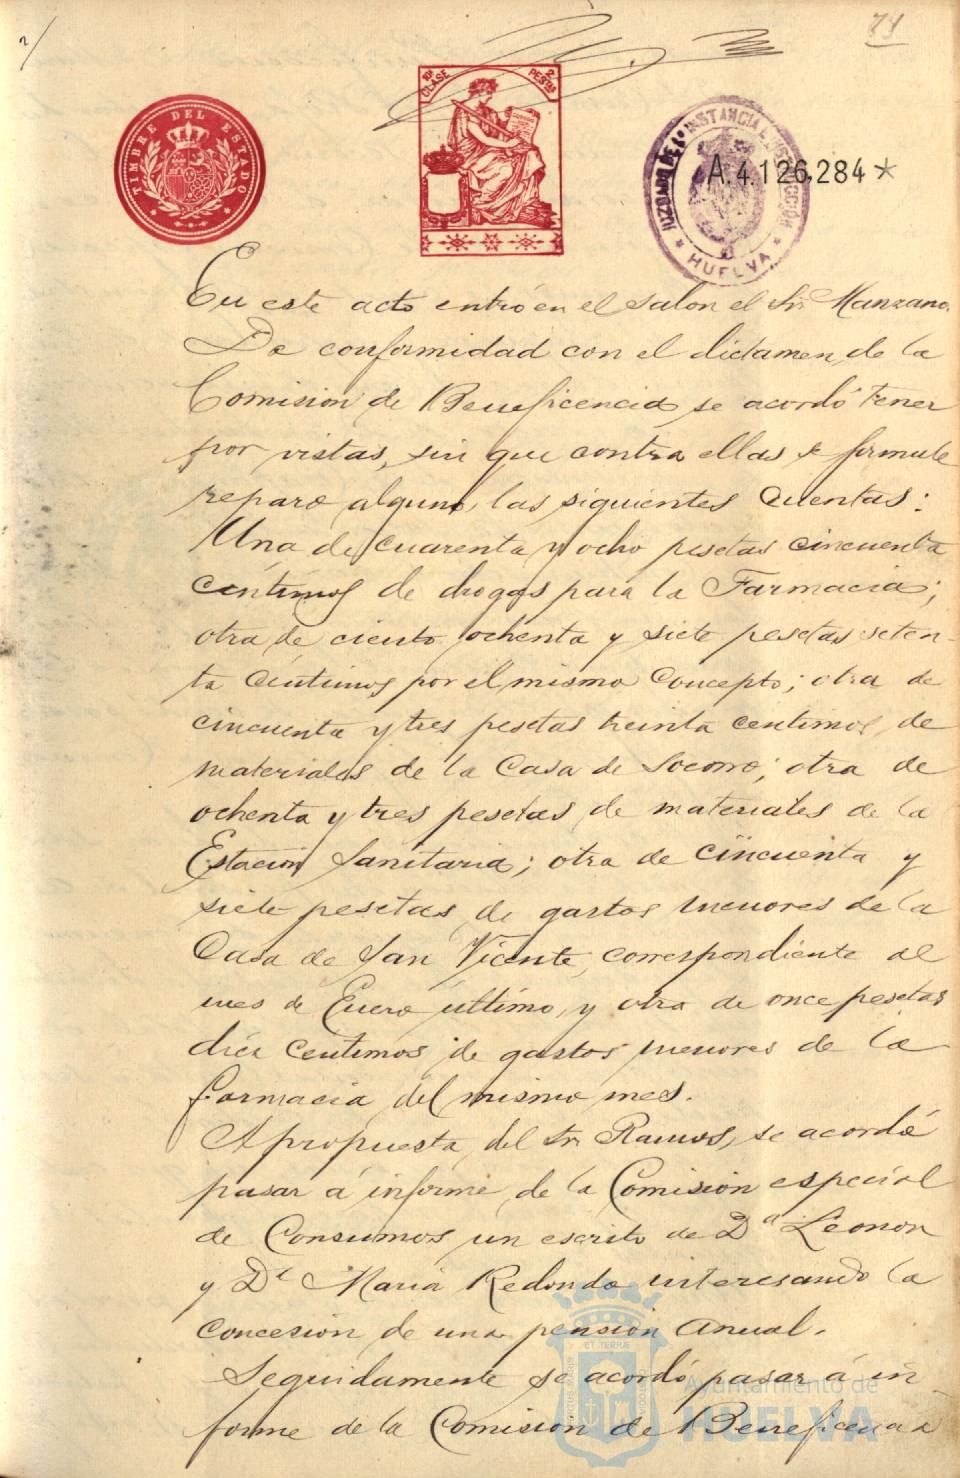 74
TIMBRE DEL ESTADO
10ª CLASE 2 PESETAS
JUZGADO DE 1ª INSTANCIA E INSTRUCCIÓN
HUELVA
A.4.126.284*
En este acto entró en el salon el Sr. Manzano.
De conformidad con el dictamen de la
Comisión de Beneficencia se acordó tener
por vistas, sin que contra ellas se formule
reparo alguno, las siguientes cuentas:
Una de cuarenta y ocho pesetas cincuenta
céntimos de drogas para la Farmacia;
otra de ciento ochenta y siete pesetas seten-
ta céntimos por el mismo concepto; otra de
cincuenta y tres pesetas treinta centimos, de
materiales de la Casa de Socorro; otra de
ochenta y tres pesetas de materiales de la
Estación Sanitaria; otra de cincuenta y
siete pesetas de gastos menores de la
Casa de San Vicente, correspondiente al
mes de Enero último, y otra de once pesetas
diez centimos de gastos menores de la
farmacia del mismo mes.
A propuesta del Sr. Ramos, se acordó
pasar á informe de la Comisión especial
de Consumos un escrito de Dª Leonor
y Dª María Redondo interesando la
concesión de una pensión anual.
Seguidamente se acordó pasar á in
forme de la Comisión de Beneficencia
Ayuntamiento de
HUELVA